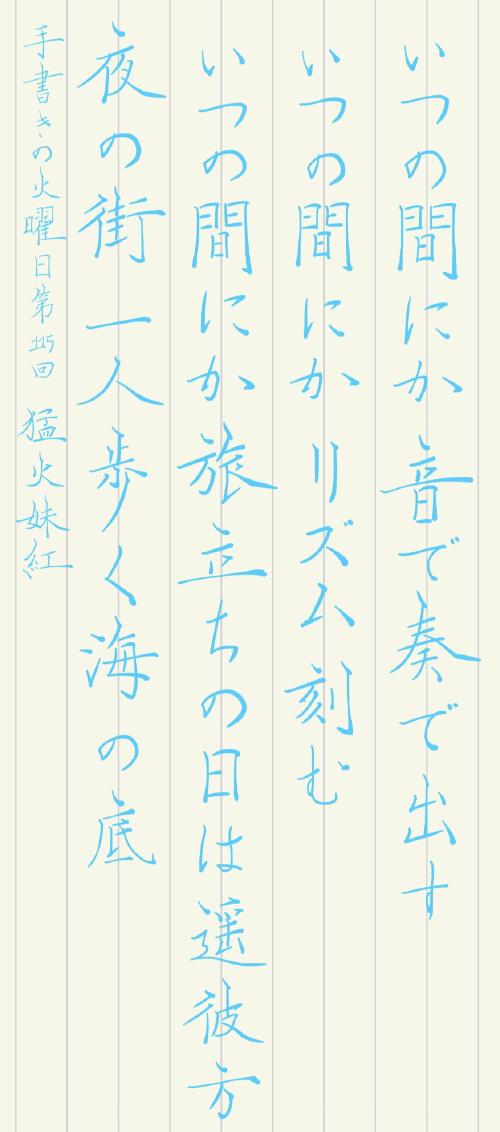 いつの間にか 音で奏で出す
いつの間にか リズム刻む
いつの間にか旅立ちの日は遥彼方
夜の街 一人歩く海の底
手書きの火曜日第115回 猛火妹紅